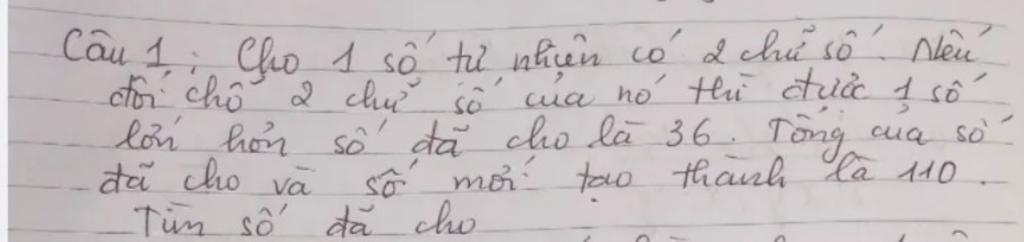 Câu 1: Cho 1 số tự nhiên có 2 chữ số. Nếu
đổi chỗ 2 chữ số của nó thì được 1 số
lớn hơn số đã cho là 36. Tổng của số
đã cho và số mới tạo thành là 110.
Tìm số đã cho